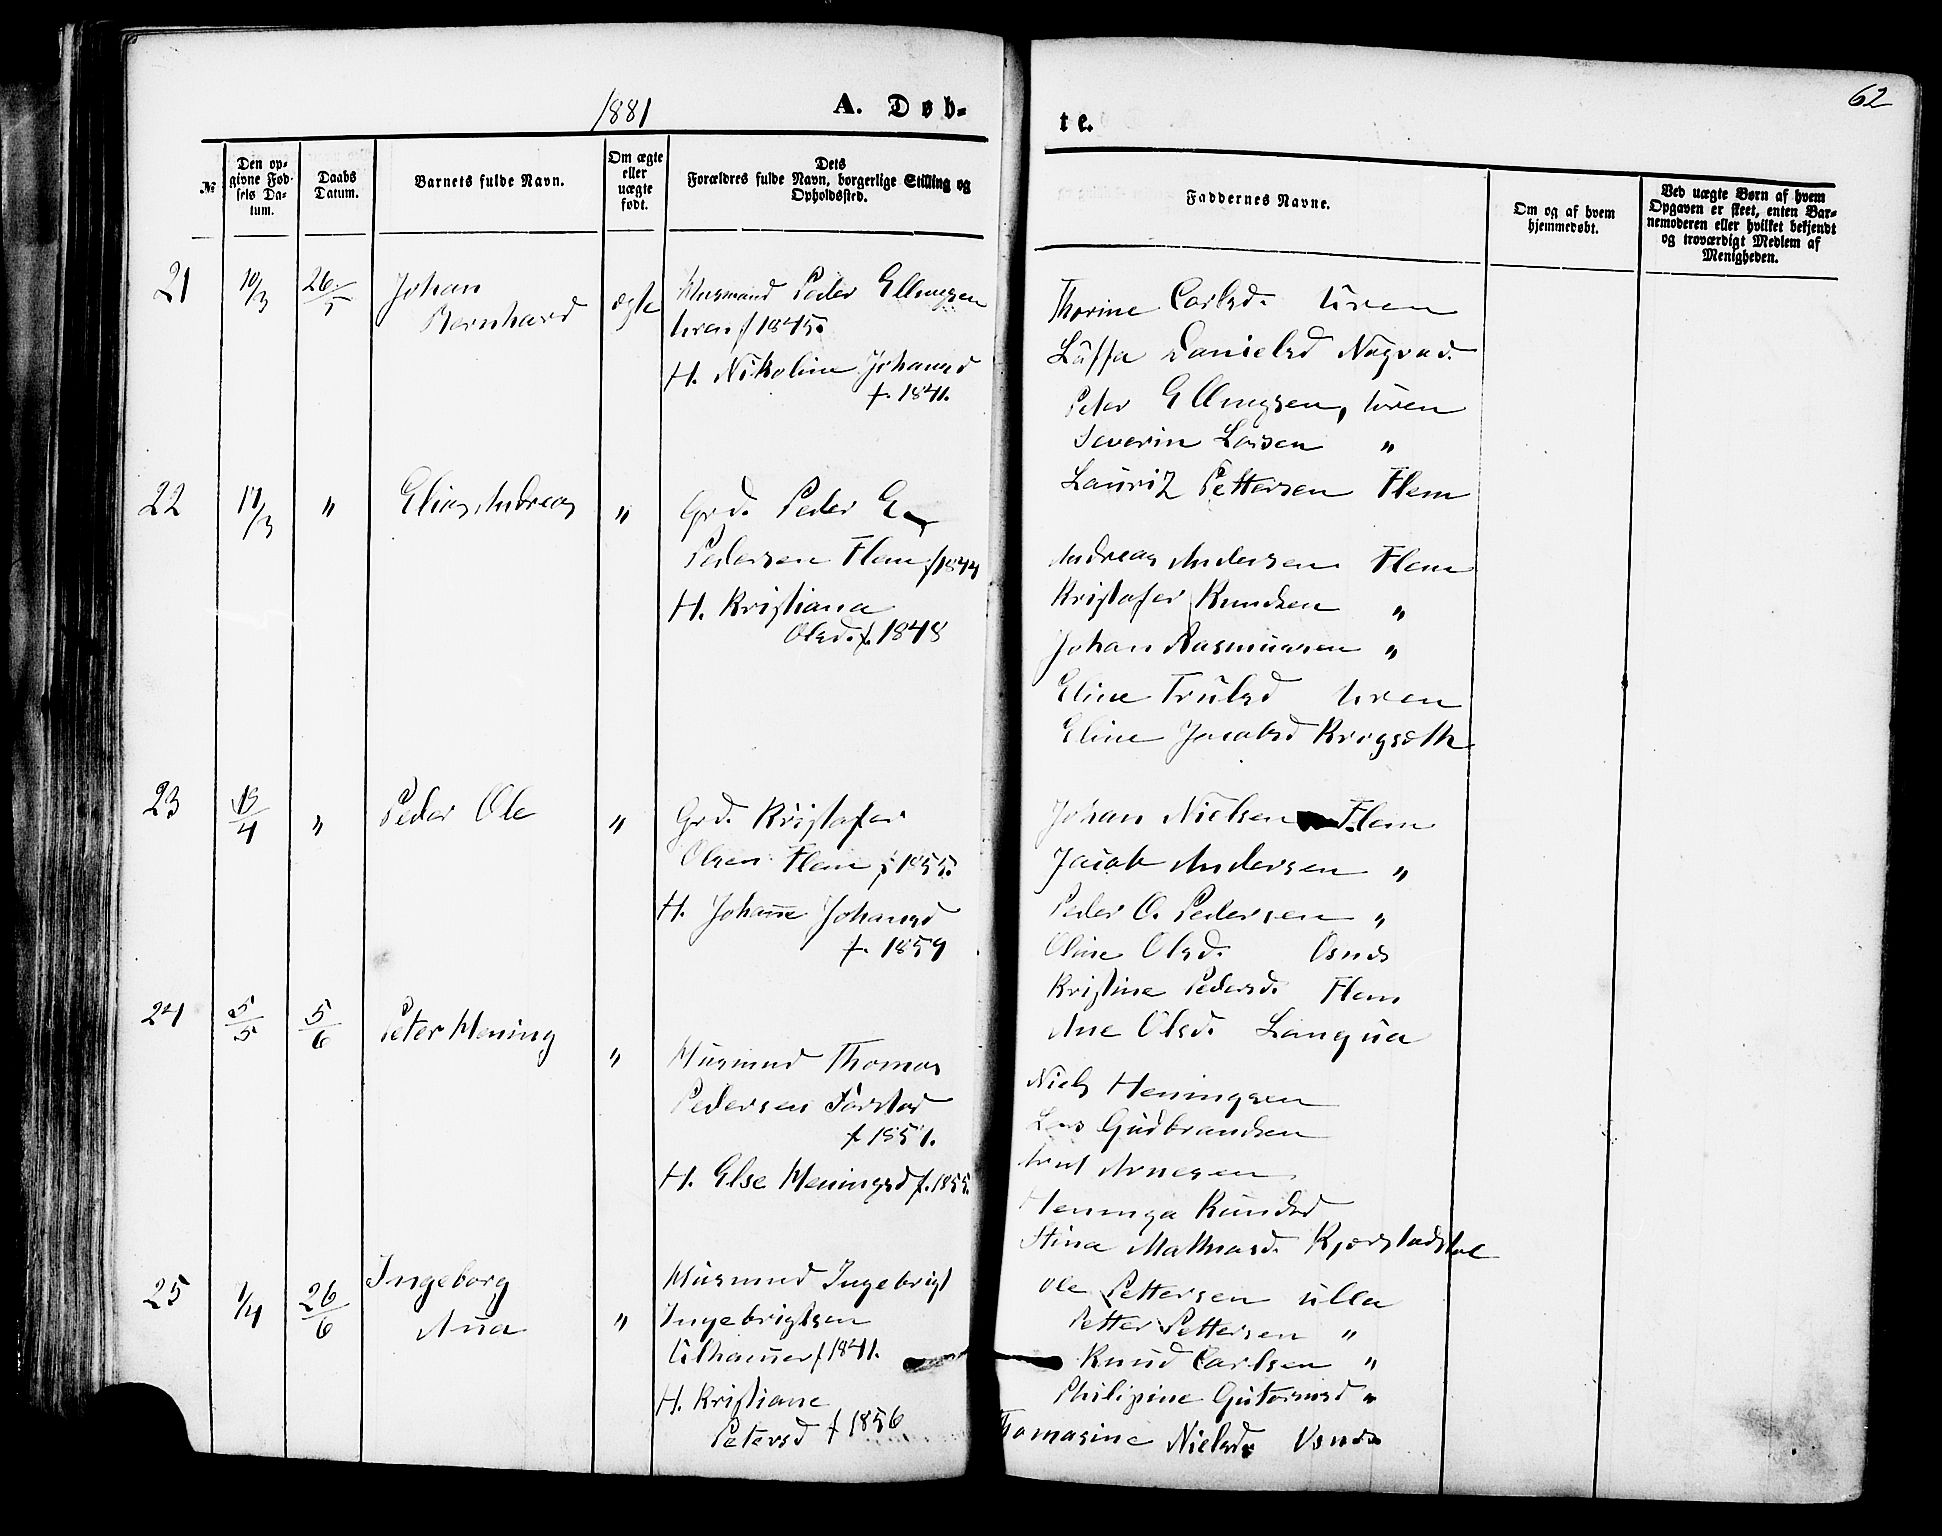 1881 A. Døb-
te. 62
№
Den op-
givne Fød-
sels Da-
tum.
Daabs
Datum.
Barnets fulde Navn.
Om ægte
eller
uægte
født.
Dets
Forældres fulde Navn, borgerlige Stilling og
Opholdssted.
Faddernes Navne.
Om og af hvem
hjemmedøbt.
Ved uægte Børn af hvem
Opgaven er skeet, enten Bar-
nemoderen eller hvilket bekjendt
og troværdigt Medlem af
Menigheden.
21 10/3 26./5 Johan
Bernhard
ægte
Husmand Peder Ellingsen
Uren f 1845.
H. Nikoline Johansd
f. 1841.
Thorine Carlsd. Uren
Danielsd
Peter Ellingsen, Uren
Severin Larsen "
Lauritz Pettersen Flem
22 17/3 " Elias Andreas "
Grd. Peder
Pedersen Flem f 1844
H. Kristiana
Olsd. f. 1848
Andreas Andersen Flem
Kristofer Knudsen "
Johan Rasmussen "
Eline Trulsd Uren
Eline Jacobsd Krogsæth
23 /4 " Peder Ole "
Grd. Kristofer
Olsen Flem f 1855.
H. Johanne Johansd
f. 1859
Johan Nielsen Flem
Jacob Andersen "
Peder O. Pedersen "
Oline Olsd. Osnes
Kristine Pedersd. Flem
Ane Olsd. Langva
24 5/5 5/6 Peter Hening "
Husmnd Thomas
Pedersen Farstad
f 1851.
H. Else Heningsd f. 1855.
Niels Heningsen
Gudbrandsen
Arnesen
Heninga Knudsd
Stina Mathiasd. Kjærstadstol
25 1/4 26/6 Ingeborg
Anna
"
Husmnd Ingebrigt
Ingebrigtsen
Ulhammer f 1841.
H. Kristiane
Petersd f 1856
Ole Pettersen Ulla
Petter Pettersen "
Knud Carlsen "
Philipine Gutormsd "
Thomasine Nielsd. Osnes